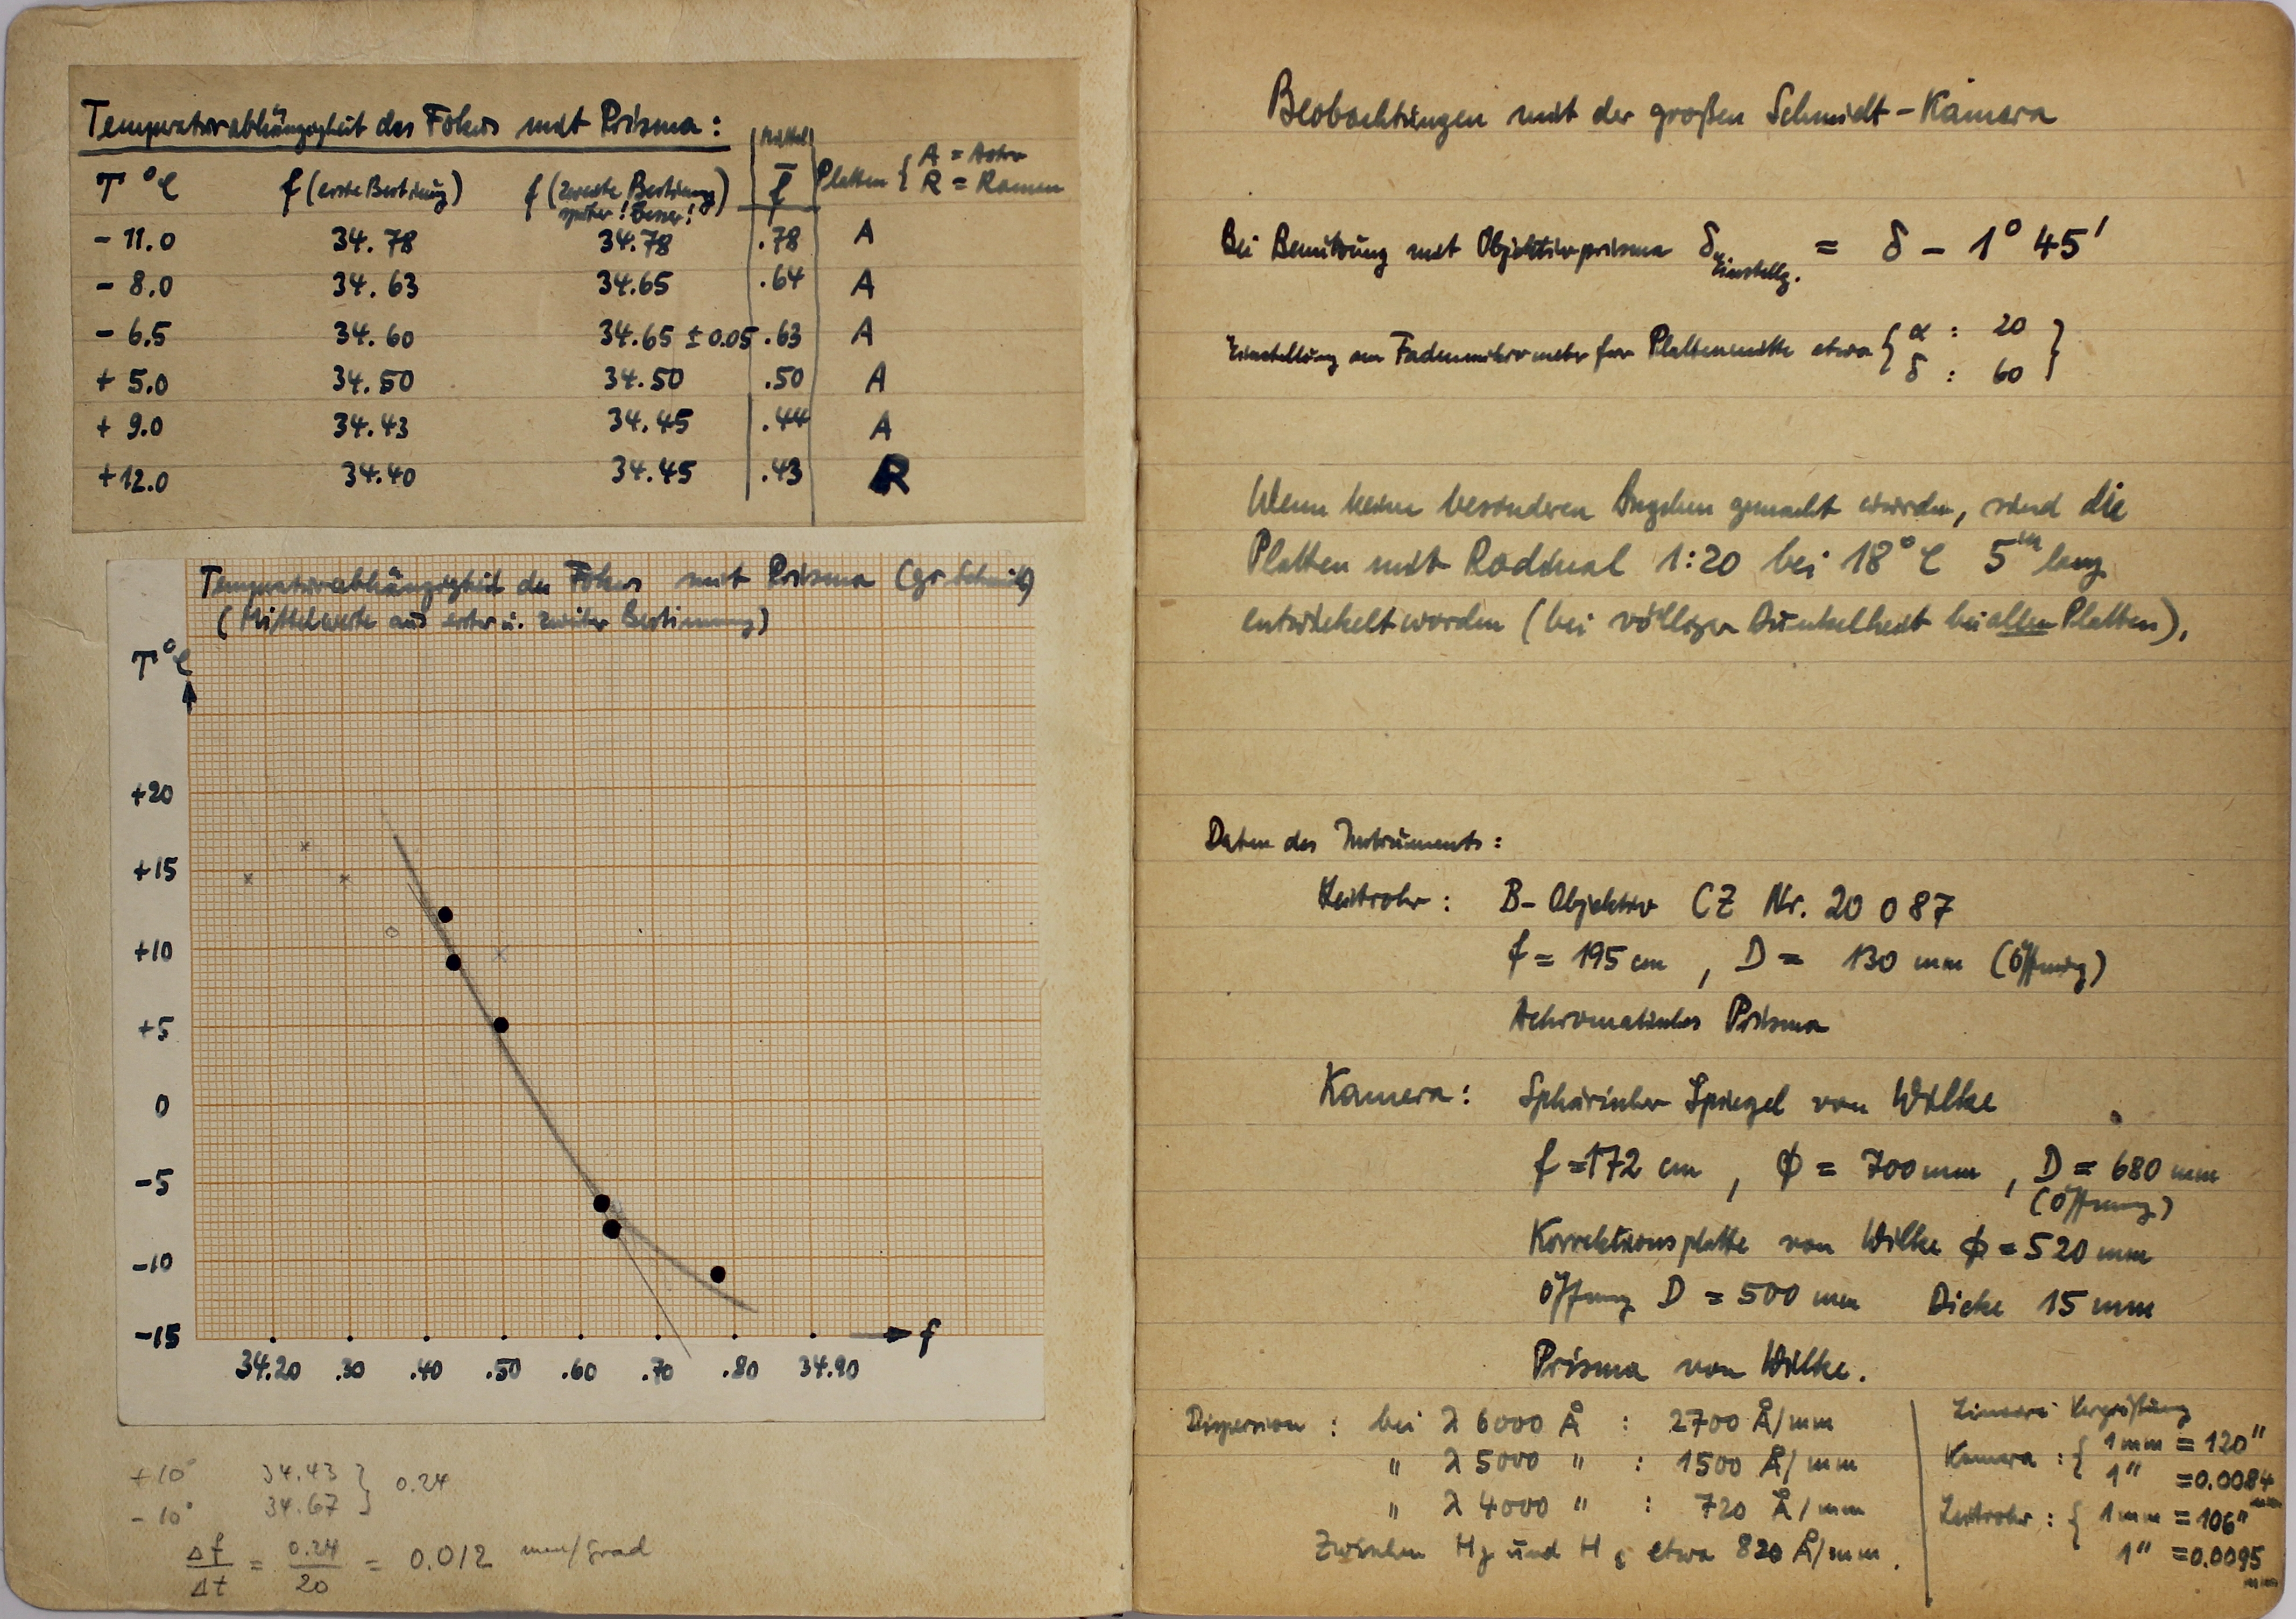 Temperaturabhängigkeit des Fokus mit Prisma:
T °C f (erste Bestimmg) f (zweite Bestimmung später! besser!) Mittel f̄ Platten { A = Astro R = Raman
- 11.0 34.78 34.78 .78 A
- 8.0 34.63 34.65 .64 A
- 6.5 34.60 34.65 ± 0.05 .63 A
+ 5.0 34.50 34.50 .50 A
+ 9.0 34.43 34.45 .44 A
+12.0 34.40 34.45 .43 R
Temperaturabhängigkeit des Fokus mit Prisma (gr. Schmidt)
(Mittelwerte aus erster u. zweiter Bestimmung)
T °C
+20
+15
+10
+5
0
-5
-10
-15
f
34.20 .30 .40 .50 .60 .70 .80 34.90
+10° 34.43 } 0.24
-10° 34.67
Δf/Δt = 0.24/20 = 0.012 mm/Grad
Beobachtungen mit der großen Schmidt-Kamera
Bei Benutzung mit Objektivprisma δ Einstellg. = δ - 1° 45'
Einstellung am Fadenmikrometer für Plattenmitte etwa { α : 20
δ : 60 }
Wenn keine besonderen Angaben gemacht wurden, sind die
Platten mit Rodinal 1:20 bei 18°C 5m lang
entwickelt worden (bei völliger Dunkelheit bei allen Platten).
Daten des Instruments:
Leitrohr: B-Objektiv CZ Nr. 20 087
f = 195 cm, D = 130 mm (Öffnung)
Achromatisches Prisma
Kamera: Sphärischer Spiegel von Wilke
f = 172 cm, ϕ = 700 mm, D = 680 mm
(Öffnung)
Korrektionsplatte von Wilke ϕ = 520 mm
Öffnung D = 500 mm Dicke 15 mm
Prisma von Wilke.
Dispersion: bei λ 6000 Å : 2700 Å/mm
" λ 5000 " : 1500 Å/mm
" λ 4000 " : 720 Å/mm
Zwischen Hγ und Hδ etwa 820 Å/mm.
Lineare Vergrößung
Kamera: { 1mm = 120"
1" = 0.0084 mm
Leitrohr: { 1mm = 106"
1" = 0.0095 mm